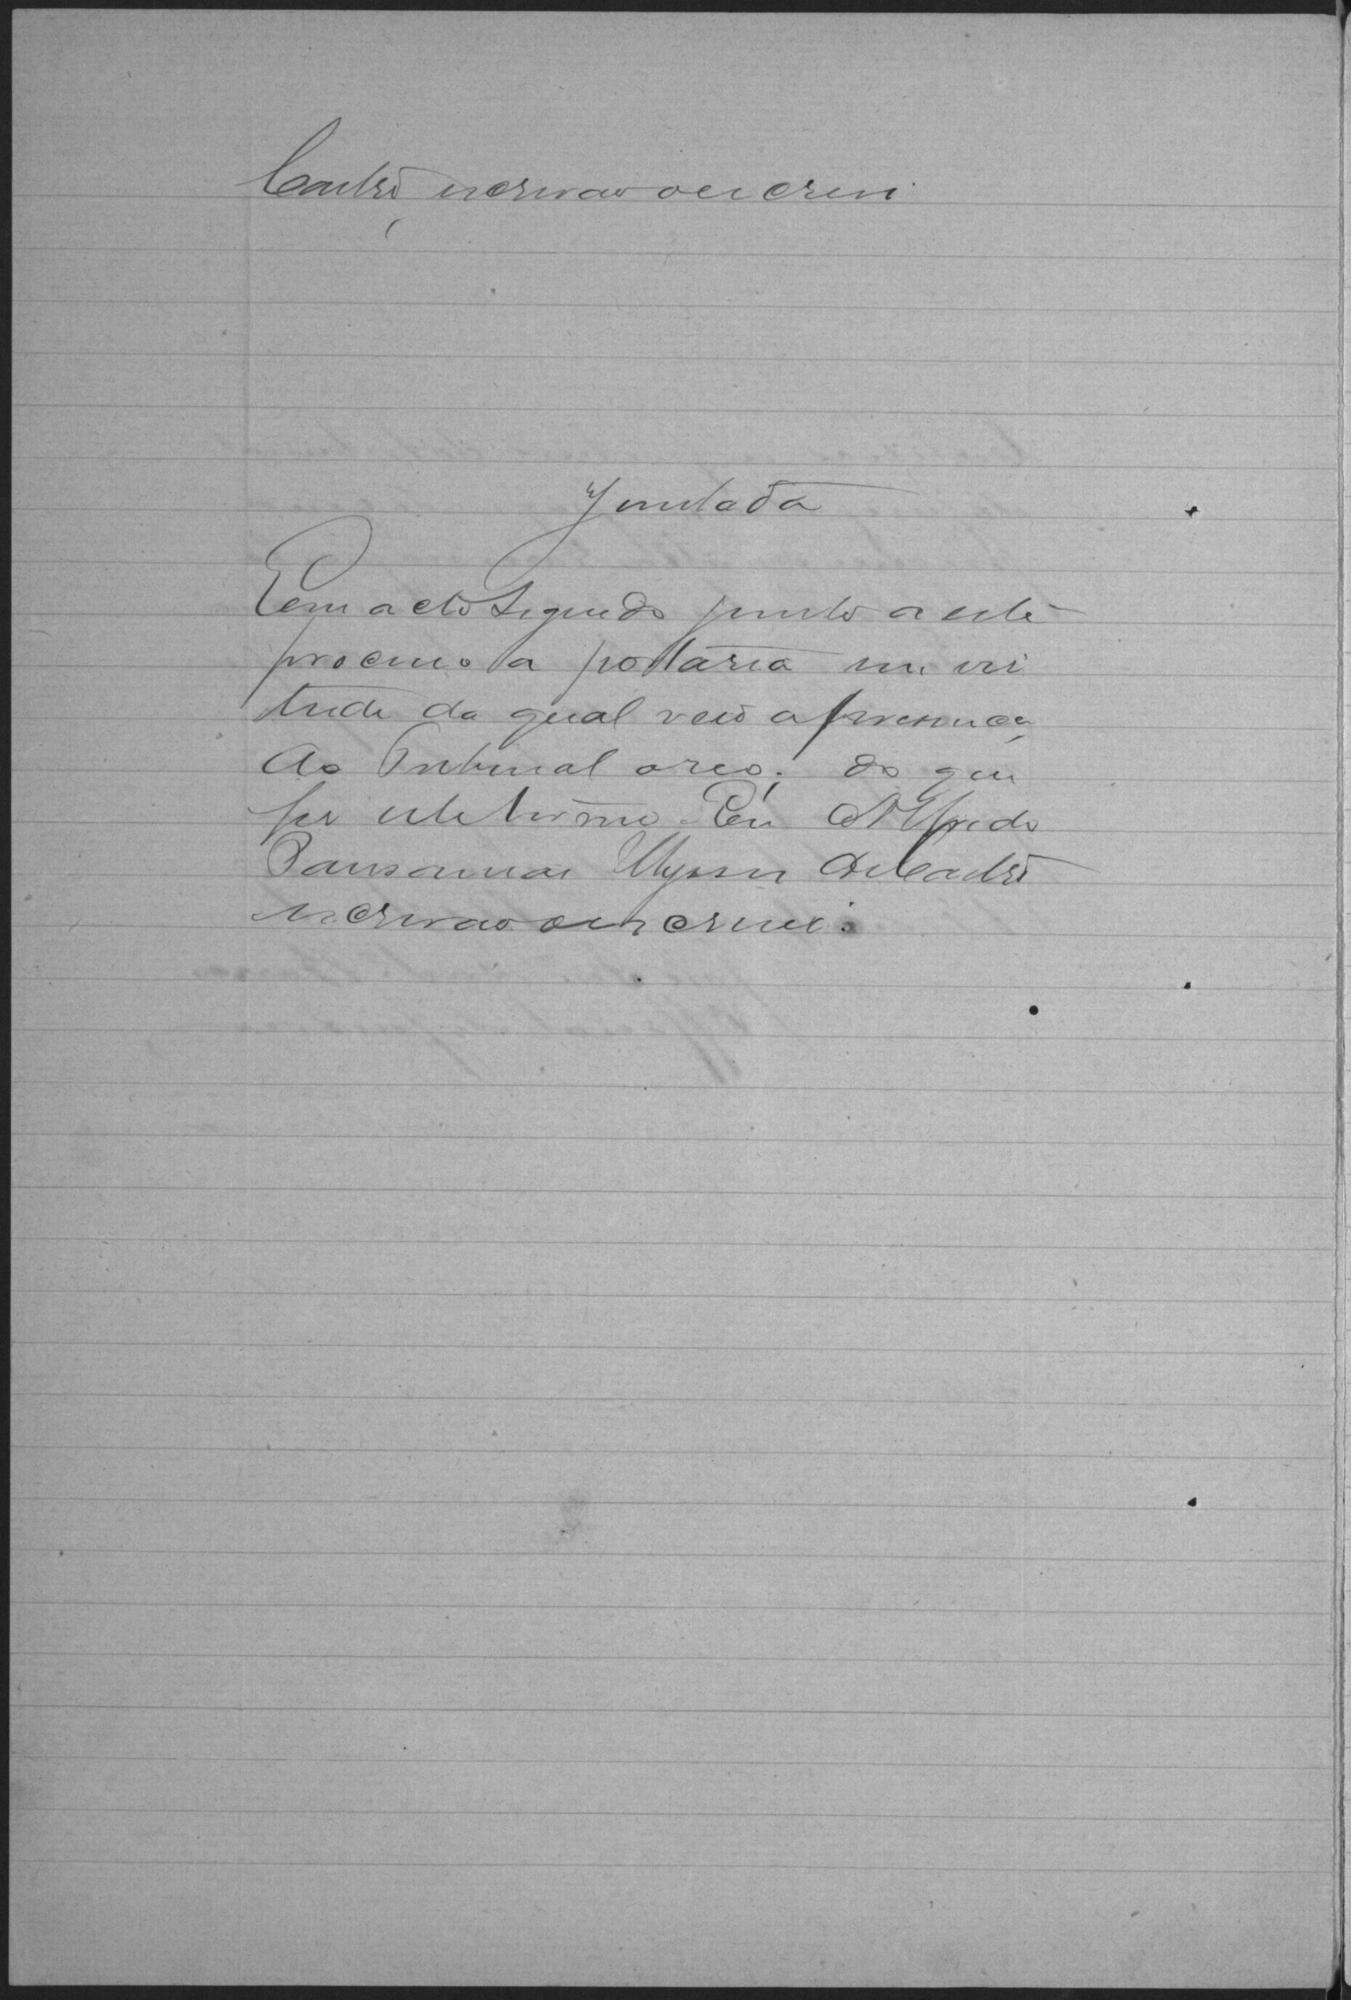 Castro, escrivão o escrevi.
Juntada
Em acto seguido junto a este
processo a portaria em vir
tude da qual veio a presença
do Tribunal o reo; do que
fiz este termo. Eu Alfredo
Pausanias Ulysses de Castro
escrivão o escrevi.